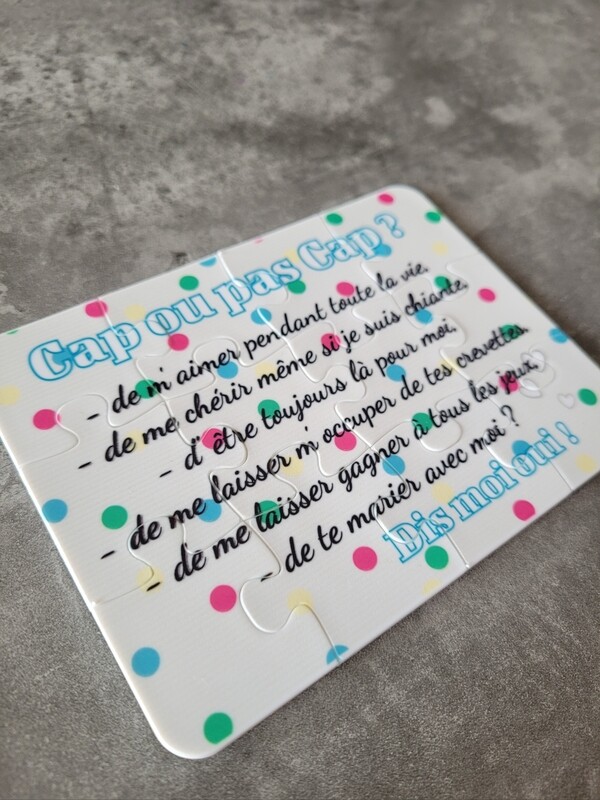 Cap ou pas Cap ?
- de m'aimer pendant toute la vie.
- de me chérir même si je suis chiante.
- d'être toujours là pour moi.
- de me laisser m'occuper de tes crevettes.
- de me laisser gagner à tous les jeux.
- de te marier avec moi ?
Dis moi oui !